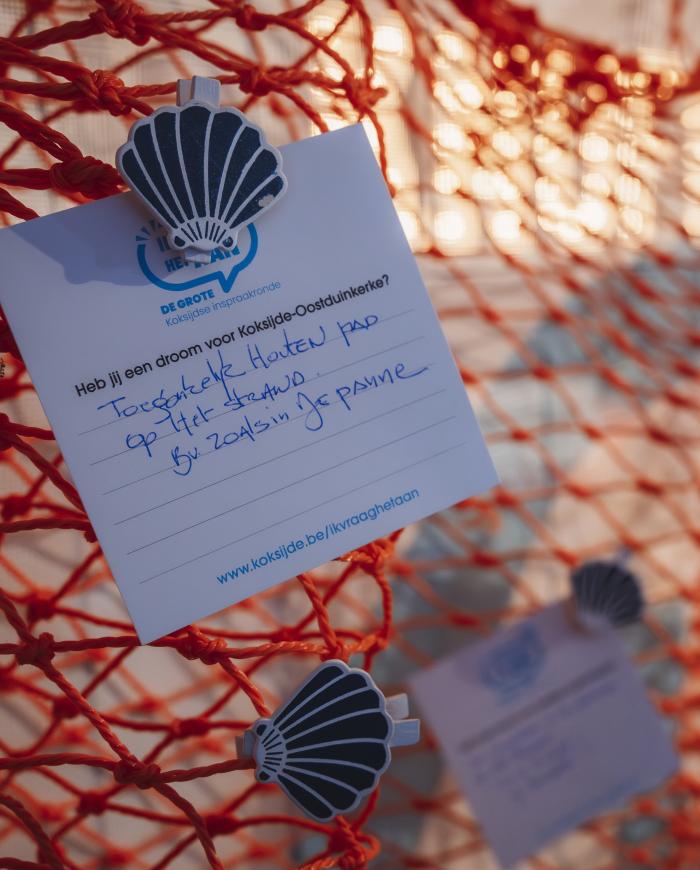 HET AAN
DE GROTE
Koksijdse inspraakronde
Heb jij een droom voor Koksijde-Oostduinkerke?
Toegankelijk Houten pad
op Het strand.
Bv. zoals in De panne
www.koksijde.be/ikvraaghetaan